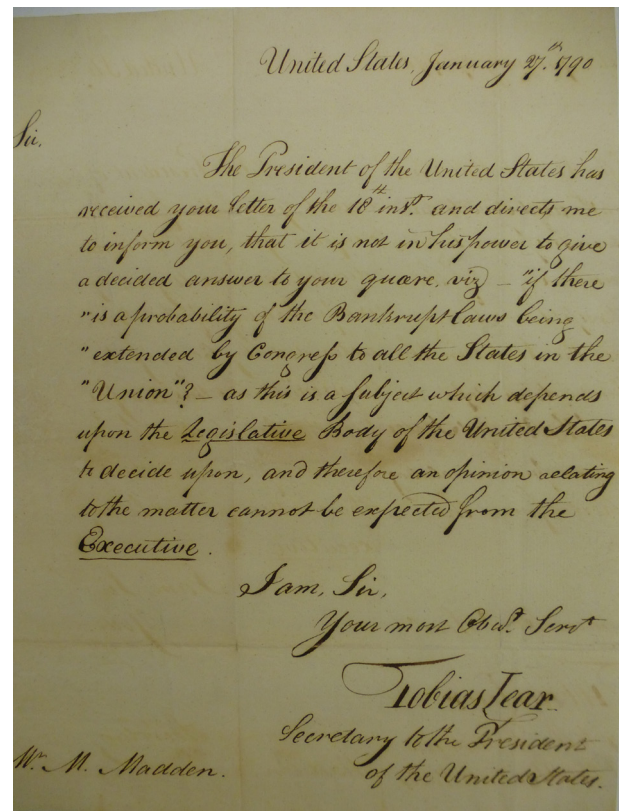 United States, January 27.th 1790
Sir,
The President of the United States has
received your letter of the 18th inst. and directs me
to inform you, that it is not in his power to give
a decided answer to your quære, viz — "if there
"is a probability of the Bankrupt Laws being
"extended by Congress to all the States in the
"Union"? — as this is a subject which depends
upon the Legislative Body of the United States
to decide upon, and therefore an opinion relating
to the matter cannot be expected from the
Executive.
I am, Sir,
Your most Obedt. Servt
Tobias Lear.
Secretary to the President
of the United States.
Mr. M. Madden.